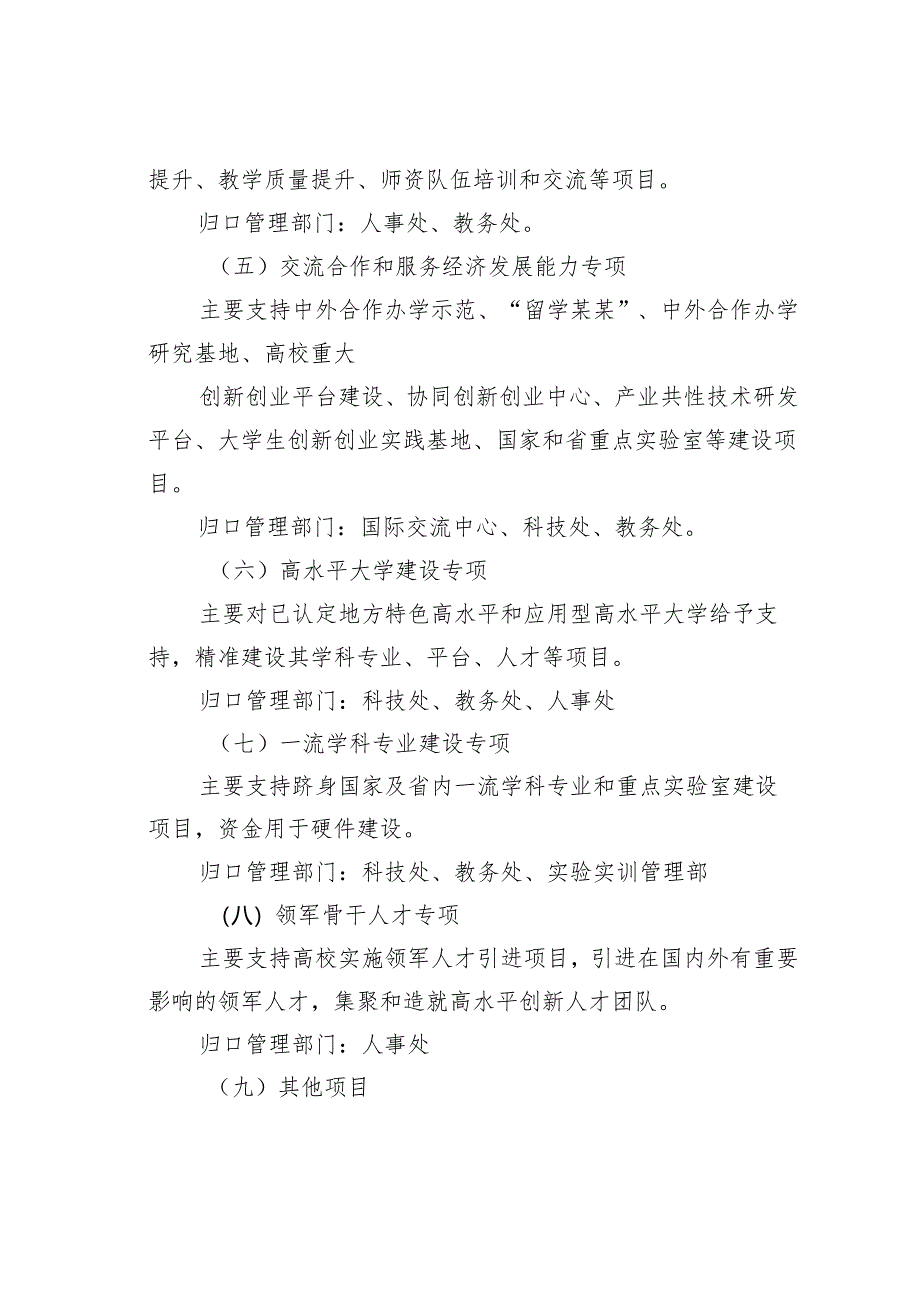 提升、教学质量提升、师资队伍培训和交流等项目。
归口管理部门：人事处、教务处。
（五）交流合作和服务经济发展能力专项
主要支持中外合作办学示范、“留学某某”、中外合作办学
研究基地、高校重大
创新创业平台建设、协同创新创业中心、产业共性技术研发
平台、大学生创新创业实践基地、国家和省重点实验室等建设项
目。
归口管理部门：国际交流中心、科技处、教务处。
（六）高水平大学建设专项
主要对已认定地方特色高水平和应用型高水平大学给予支
持，精准建设其学科专业、平台、人才等项目。
归口管理部门：科技处、教务处、人事处
（七）一流学科专业建设专项
主要支持跻身国家及省内一流学科专业和重点实验室建设
项目，资金用于硬件建设。
归口管理部门：科技处、教务处、实验实训管理部
(八) 领军骨干人才专项
主要支持高校实施领军人才引进项目，引进在国内外有重要
影响的领军人才，集聚和造就高水平创新人才团队。
归口管理部门：人事处
（九）其他项目